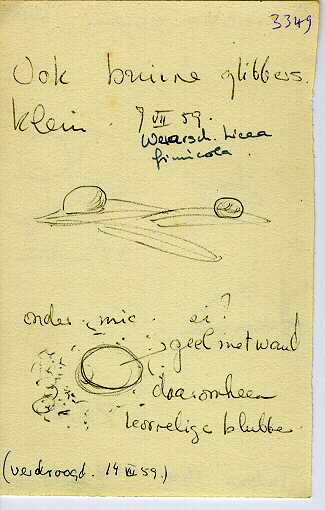 3349
Ook bruine glibbers.
klein. 9 VII 59.
Waarsch. Licea
fimicola.
onder mic. ei?
geel met wand
daaromheen
korrelige blubber
(verdroogd. 14 VII 59.)